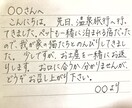 〇〇さんへ
こんにちは。先日、温泉旅行に行っ
てきました。ペットと一緒に泊まれる宿だったの
で、我が家の猫たちとのんびりしてきまし
た。少しですが、お土産を一緒にお送り
します。お口に合うか分かりませんが、
どうぞお召し上がり下さい。
〇〇より